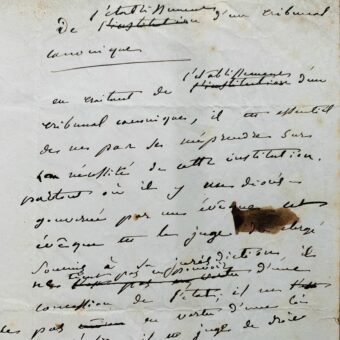 De l'établissement d'un tribunal
l'institution
canonique
l'établissement
en traitant de l'institution d'un
tribunal canonique, il est essentiel
de ne pas se méprendre sur
la nécessité de cette institution.
partout où il y a un diocèse
gouverné par un évêque cet
évêque est le juge du clergé
Soumis à sa juridiction, il
d'une
concession de l'état; il
pas en vertu d'une loi
il juge de droit